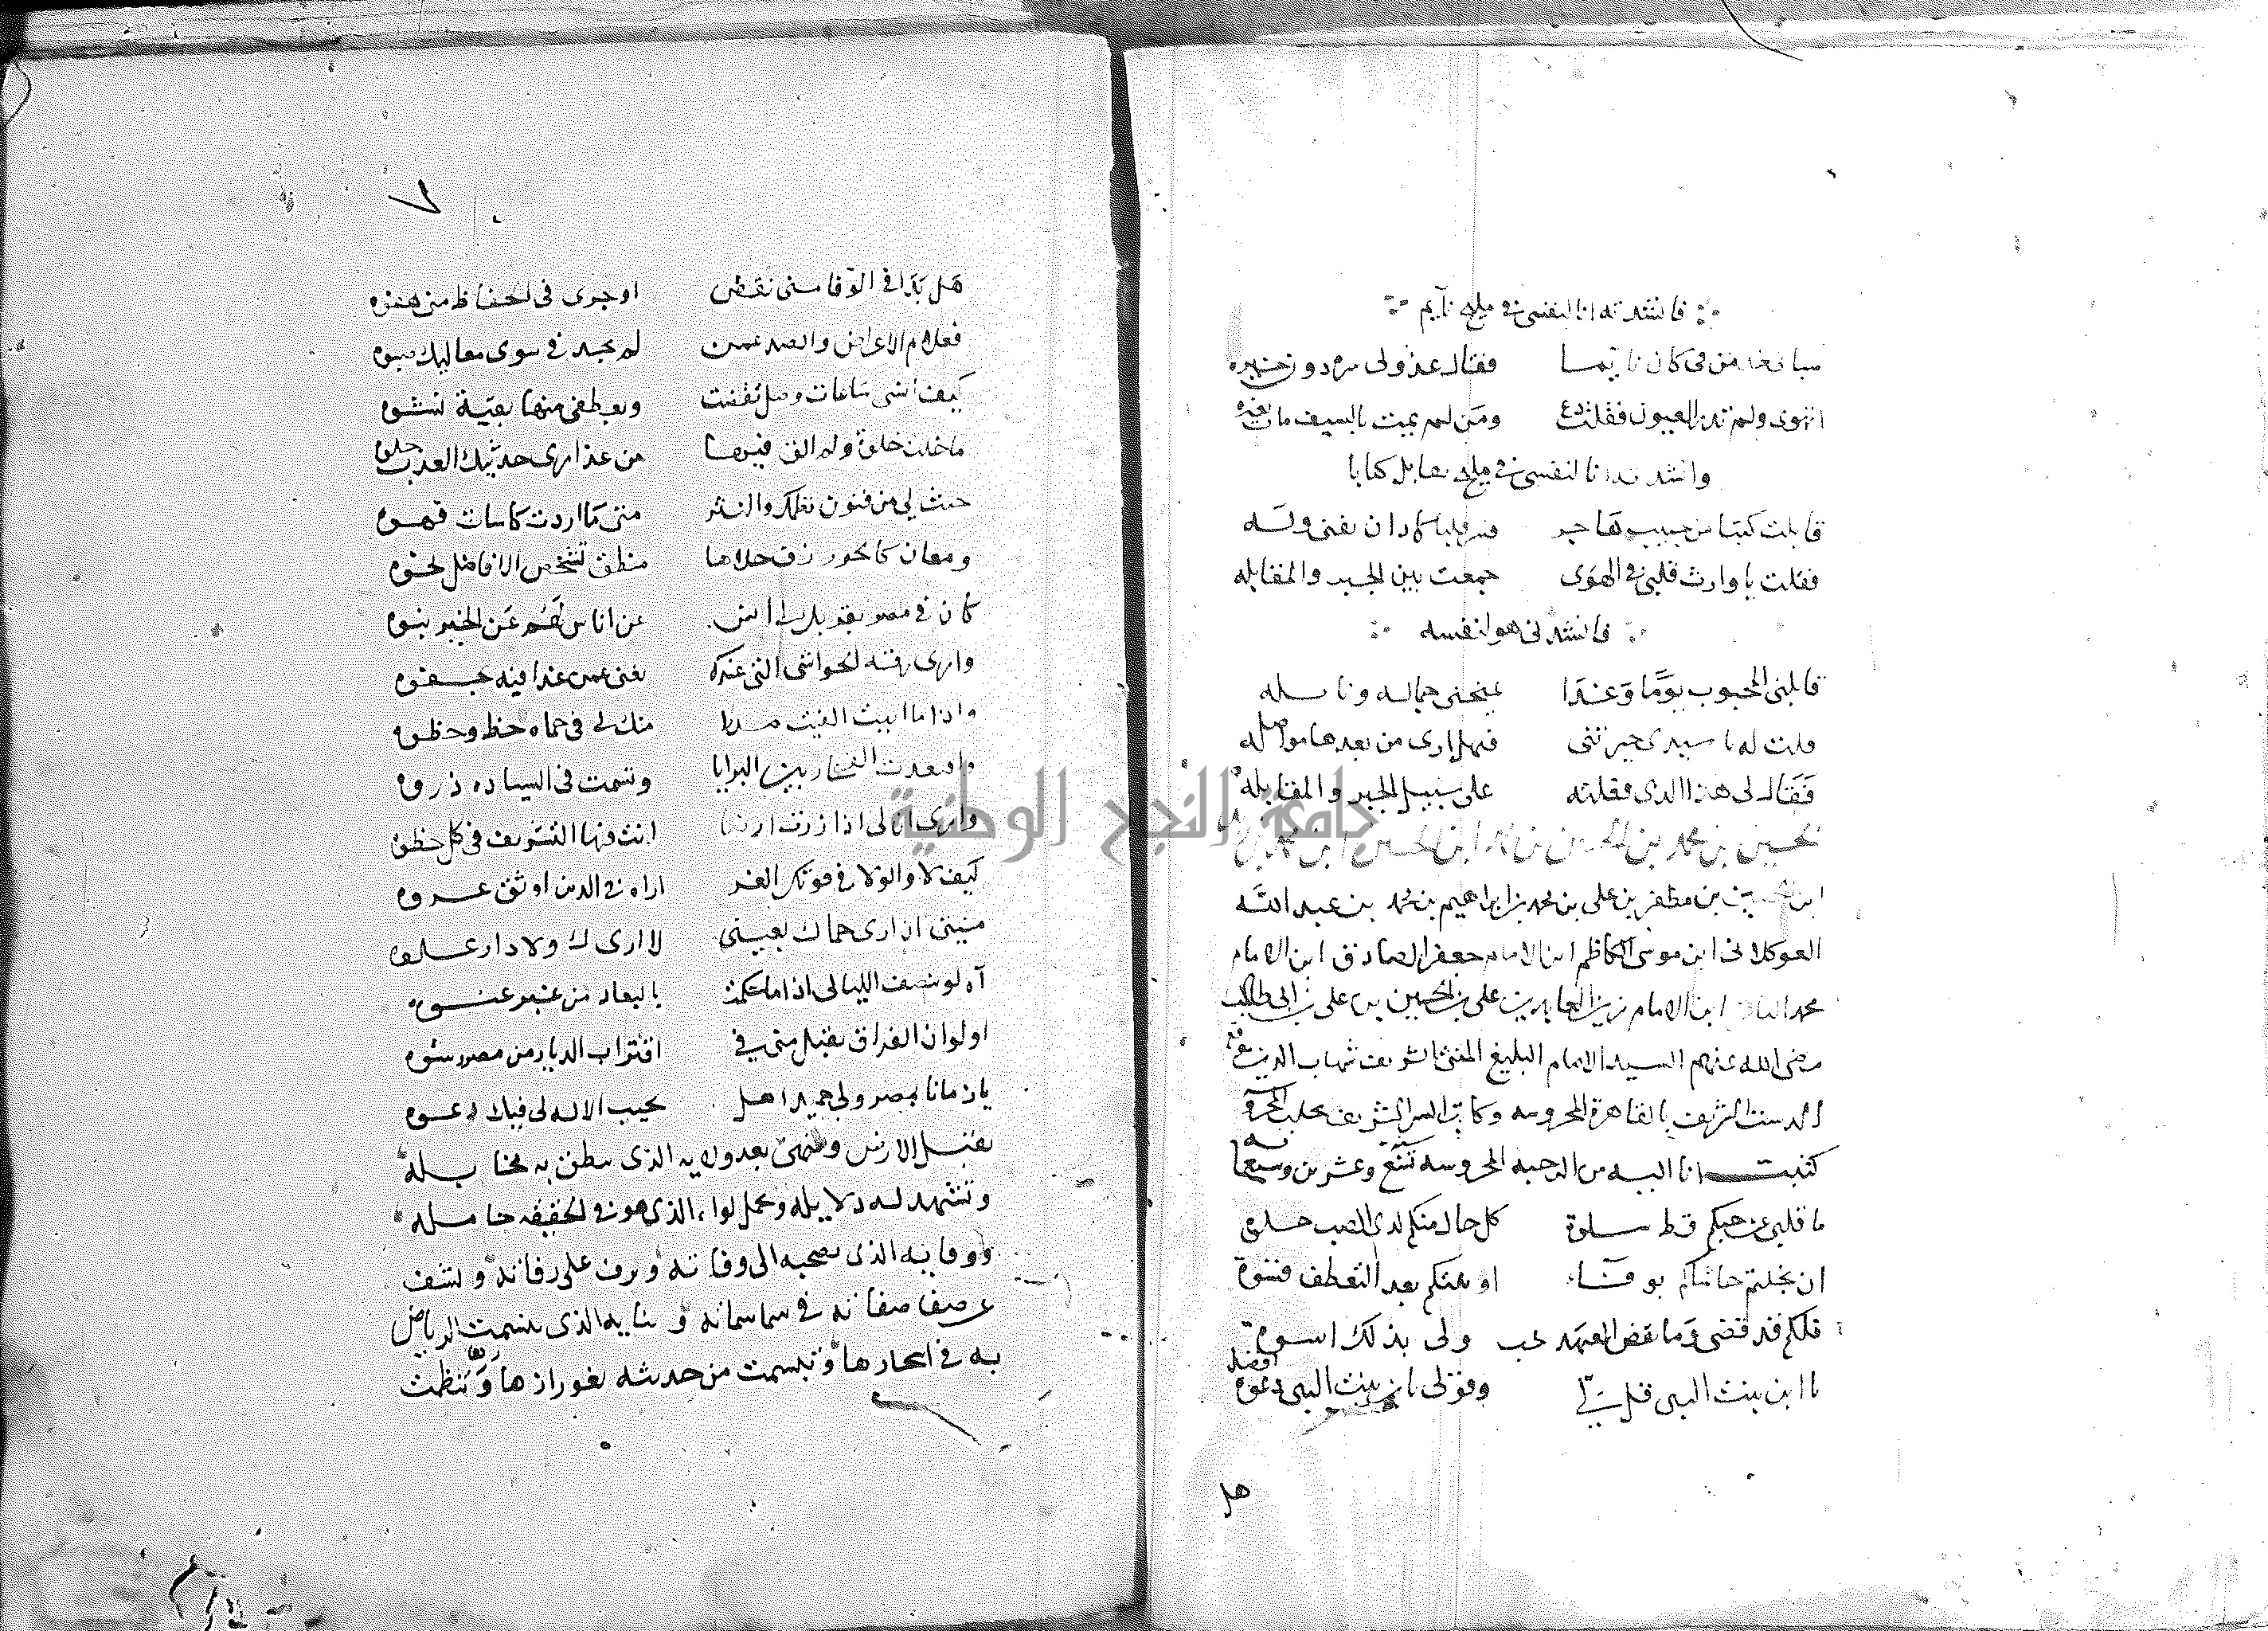 فانشدته انا لنفسي في مليح نايم
سبا فغدا من في كان نايما فقال عذولي
اتهوى ولم تدر العيون فقلت دع ومن لم يمت بالسيف مات بغيره
وانشدته انا لنفسي في مليح يقابل كتابا
قابلت كتبا من حبيب هاجر قلبا كاد ان يفنى وله
فقلت يا وارث قلبي في الهوى جمعت بين الجبر والمقابله
فانشدني هو لنفسه
قابلني المحبوب يوما وغدا يمنحني جماله ونا سله
قلت له يا سيدي جبرتني فهل ارى من بعدها مواصله
فقال لي هذا الذي فقلته على سبيل الجبر والمقابله
الحسين بن محمد بن
ابن الحسين بن مظفر بن علي بن محمد بن ابراهيم بن محمد بن عبد الله
العوكلاني ابن موسى الكاظم ابن الامام جعفر الصادق ابن الامام
محمد الباقر ابن الامام زين العابدين علي بن الحسين بن علي بن ابي طالب
رضي الله عنهم السيد الامام البليغ المنشي الشريف شهاب الدين موقع
الدست الشريف بالقاهرة المحروسه وكاتب السر الشريف بحلب المحروسه
كتبت انا اليه من الرحبه المحروسه تسع وعشرين وسبعمايه
ما لقلبي عن حبكم قط سلوة كل حال منكم لدى الصب حلوه
ان بخلتم حاشاكم بوفاء او علتكم بعد التعطف قسوة
فلكم قد قضى وما نقض العهد محب ولي بذلك اسوه
يا ابن بنت النبي قل لي وقولي يا ابن بنت النبي افضل دعوه
هل
٧
هل بدا في الوفا مني نقض او جرى في الحفاظ مني هفوه
فعلام الاعراض والصد عمن لم يجد في سوى معاليك صبوه
كيف انسى ساعات وصل تقضت وبعطفي منها بقية نشوه
ما خلت خلوة ولم الق فيها من عذارى حديثك العذب جلوه
حيث لي من فنون نظمك والنثر متى ما اردت كاسات قهوه
ومعان كالحور زف حلاها منطق تشخص الافاضل نحوه
كان في مصر بقربك لي انس عن اناس لهم عن الخير نبوه
وارى رقة الحواشي التي عندك يغني عمن غدا فيه جفوه
واذا ما اتيت القيت منك لي في حماه حظ وحظوه
واقعدت الفخار بين البرايا وتسمت في السياده ذروه
وارى اذا زرت ارضا انت فيها التشريف في كل خطوه
كيف لا والولا في قومك الغر اراه في الدين اوثق عروه
منيتي ان ارى حماك بعيني لا ارى لك ولا دار علوه
آه لو تنصف الليالي اذا ما حكمت بالبعاد من غير عنوه
او لو ان الفراق يقبل مني في اقتراب الديار من مصر رشوه
يا زمانا بمصر ولى حميدا هل يجيب الاله لي فيك دعوه
يقبل الارض وينهي بعد ولايه الذي يطن به مخايله
وتشهد له دلايله وحمل لواء الذي هو في الحقيقه حامله
ووفايه الذي يصحبه الى وفاته ورف على رفاته ولشف
عرصف صفاته في سما سماته وثنايه الذي بسمت الرياض
به في اسحارها وتبسمت من حديثه ثغور ازهارها وتنظمت
جامعة النجاح الوطنية